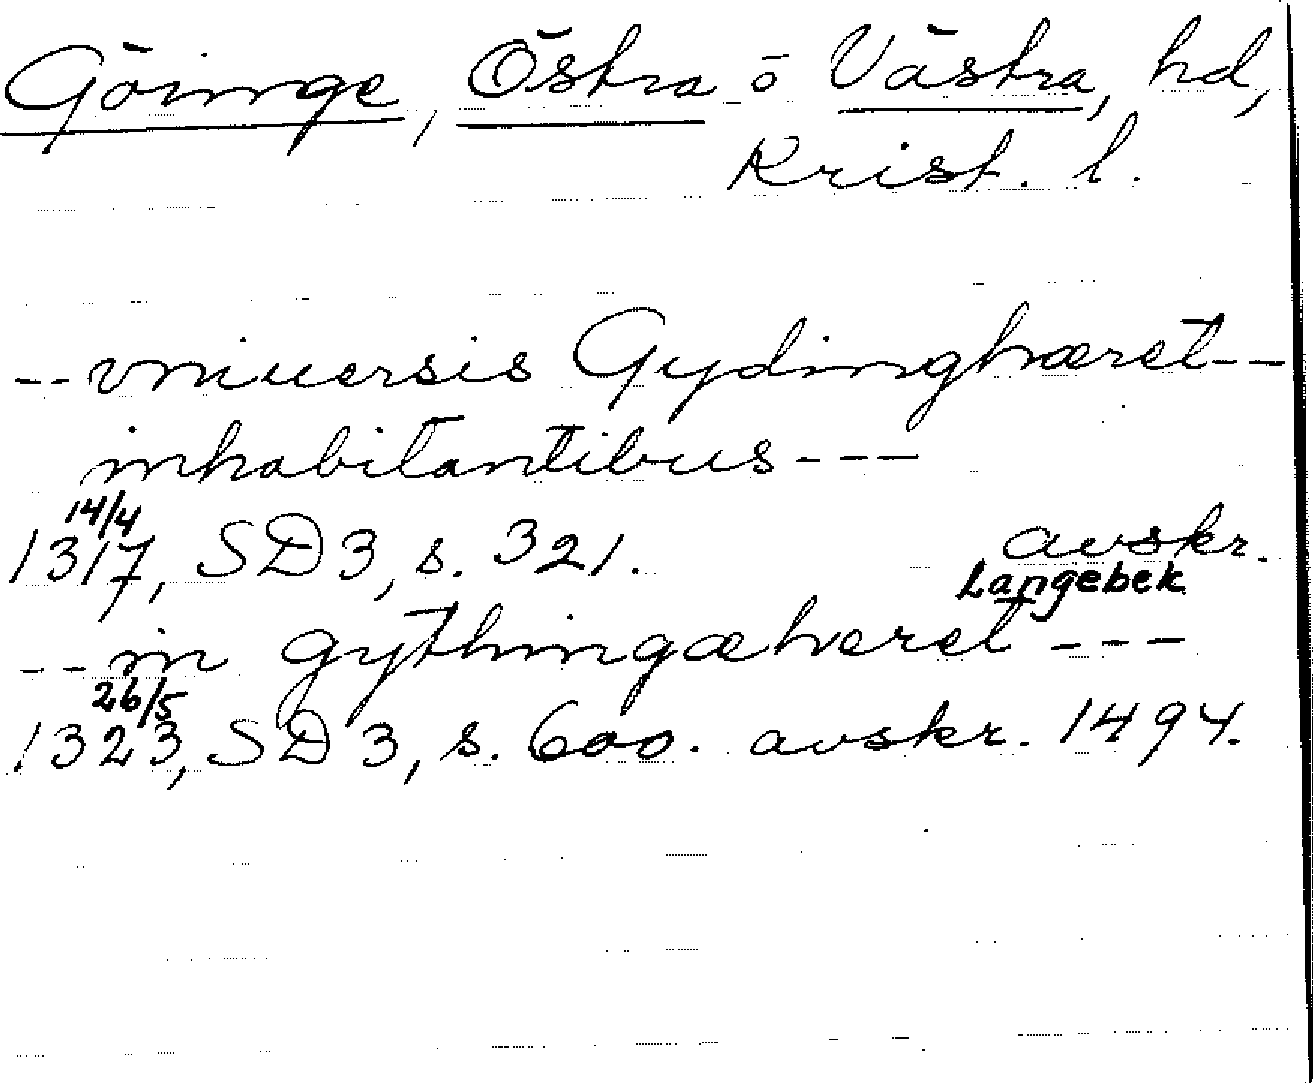 Göinge, Östra o Västra, hd,
Krist. l.
-- vniuersis Gydinghæret --
inhabitantibus ---
14/4
1317, SD 3, s. 321. avskr.
Langebek
-- in gythingæheret ---
26/5
1323, SD 3, s. 600. avskr. 1494.